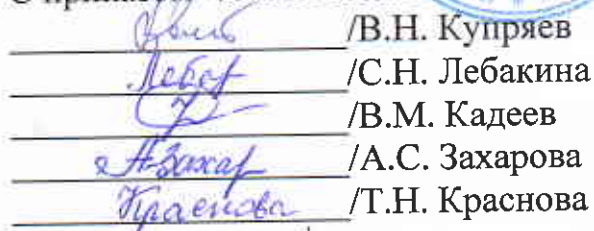 /В.Н. Купряев
/С.Н. Лебакина
/В.М. Кадеев
/А.С. Захарова
Краснова /Т.Н. Краснова